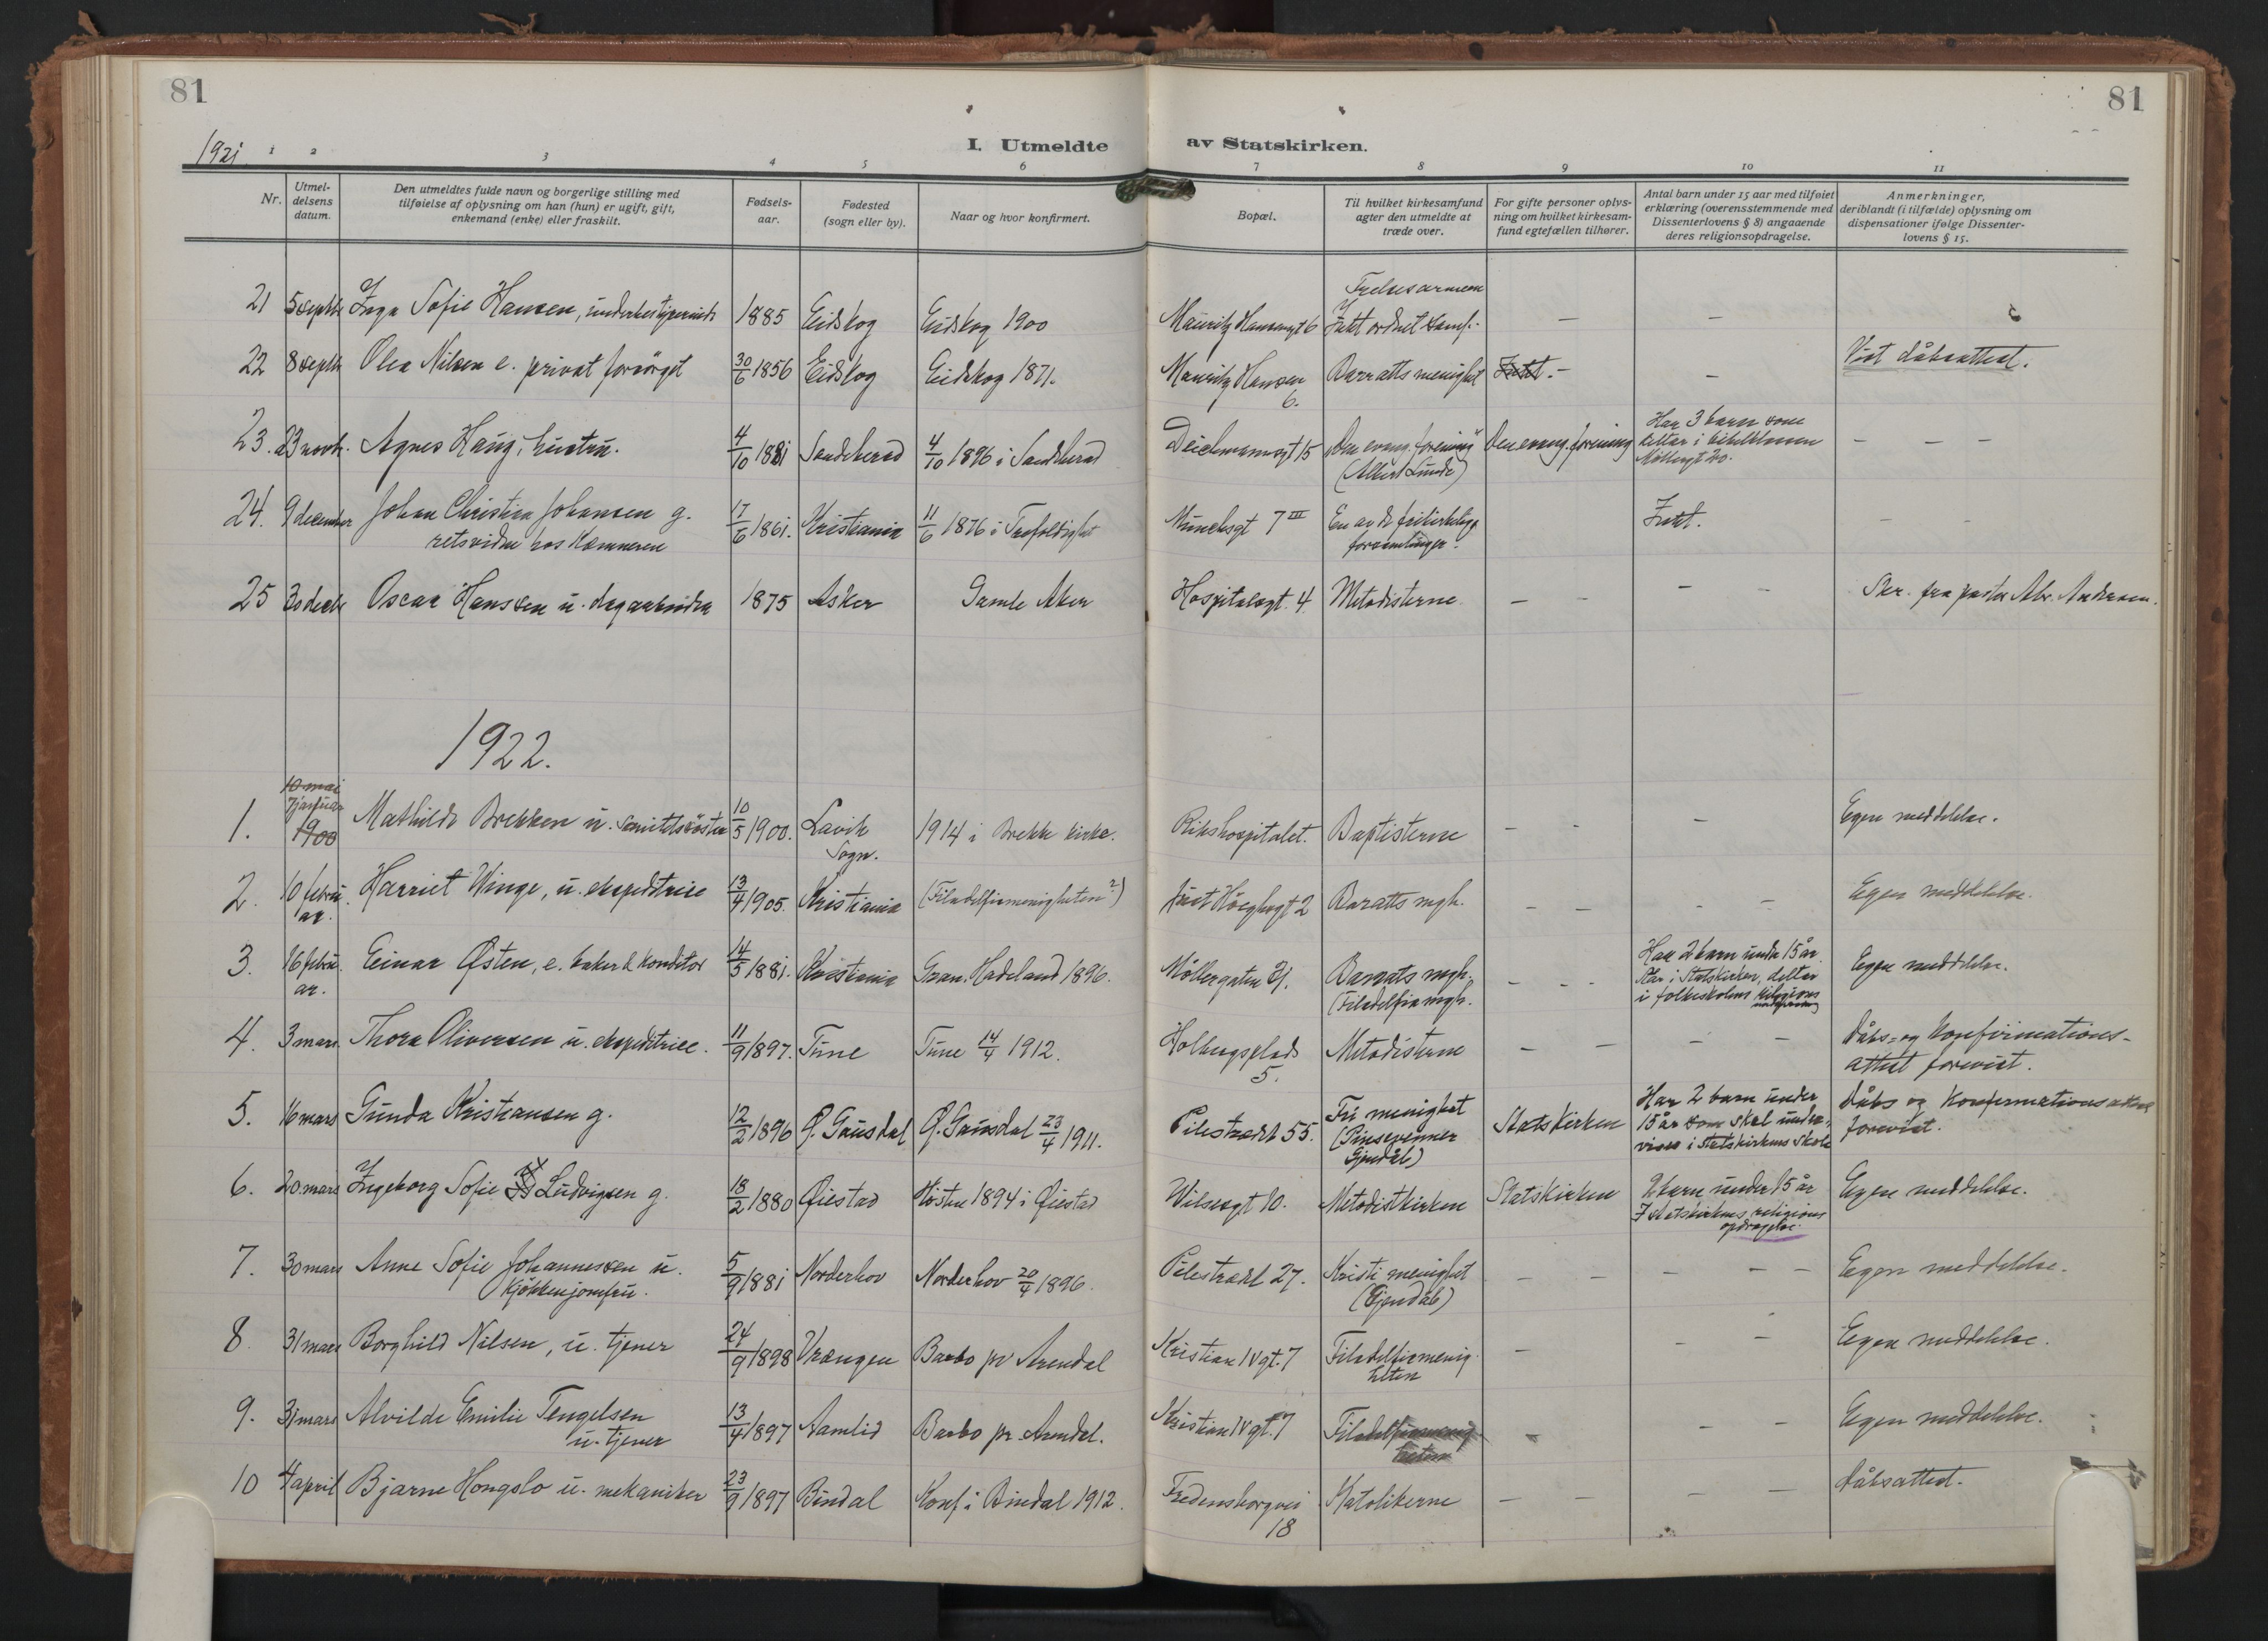 81
81
1921
I. Utmeldte av Statskirken.
1 2 3 4 5 6 7 8 9 10 11
Nr.
Utmeldelsens datum.
Den utmeldtes fulde navn og borgerlige stilling med tilføielse af oplysning om han (hun) er ugift, gift, enkemand (enke) eller fraskilt.
Fødselsaar.
Fødested (sogn eller by).
Naar og hvor konfirmert.
Bopæl.
Til hvilket kirkesamfund agter den utmeldte at træde over.
For gifte personer oplysning om hvilket kirkesamfund egtefællen tilhører.
Antal barn under 15 aar med tilføiet erklæring (overensstemmende med Dissenterlovens § 8) angaaende deres religionsopdragelse.
Anmerkninger, deriblandt (i tilfælde) oplysning om dispensationer ifølge Dissenterlovens § 15.
21 5 septbr Inga Sofie Hansen, 1885 Eidskog Eidskog 1900 Mauritz Hansensgt 6 Frelsesarmeen Intet ordnet samf. — —
22 8 septbr Olea Nilsen e. privat forsörget 30/6 1856 Eidskog Eidskog 1871. Mauritz Hansen 6. Barratts menighet Intet. — — Vist dåbsattest.
23. 23 novbr. Agnes Haug, hustru. 4/10 1881 Sandeherad 4/10 1896 i Sandeherad Deichmannsgt 15 "Den evang. forening" (Albert Lunde) Den evang. forening Har 3 barn som deltar i bibelklassen Möllergt 20. — — —
24. 9 december Johan Christian Johansen g. retsvidne hos Kæmneren 17/6 1861. Kristiania 11/6 1876 i Trefoldighet Munchsgt 7 III En av de frikirkelige forsamlinger. Intet. — —
25 30 decbr Oscar Hanssen u. dagarbeider 1875 Asker Gamle Aker Hospitalsgt. 4. Metodisterne — — — — Skr. fra pastor Abr. Andersen.
1922.
1. 10 mai 7 januar 1900 Mathilde Brekken u. sanitetssöster 10/5 1900. Lavik Sogn. 1914 i Brekke kirke. Rikshospitalet. Baptisterne — — — Egen meddelelse.
2. 10 februar. Harriet Winge, u. ekspeditrice 13/4 1905. Kristiania (Filadelfiamenigheten?) Just Höeghsgt 2 Baratts mgh. — — — — Egen meddelelse.
3. 16 februar. Einar Østen, e. baker & konditor 14/5 1881. Kristiania Gran. Hadeland 1896. Möllergaten 21. Barrats mgh. (Filadelfia mgh. — - - Har 2 barn under 15 år. Står i Statskirken, deltar i folkeskolens religionsundervisning Egen meddelelse.
4. 3 mars. Thora Oliversen u. ekspeditrice. 11/9 1897. Tune Tune 14/4 1912. Holbergsplads 5. Metodisterne — — — — Dåbs- og Konfirmations-attest forevist.
5. 16 mars Gunda Kristiansen g. 12/2 1896 Ö. Gausdal Ö. Gausdal 23/4 1911. Pilestrædet 55. Fri menighet (Pinsevenner Gjendål) Statskirken Har 2 barn under 15 år som skal undervises i Statskirkens skole Dåbs og Konfirmationsattest forevist.
6. 20 mars Ingeborg Sofie Ludvigsen g. 18/2 1880 Øiestad Hösten 1894 i Øiestad Wilsesgt 10. Metodistkirken Statskirken 2 barn under 15 år I statskirkens religionsopdragelse. Egen meddelelse.
7. 30 mars Anne Sofie Johannessen u. Kjökkenjomfru. 5/9 1881 Norderhov Norderhov 20/4 1896. Pilestrædet 27. Kristi menighet (Gjendål) — — — — — Egen meddelelse.
8. 31 mars Borghild Nilsen, u. tjener 24/9 1898 Vrængen Barbo pr Arendal Kristian IV gt. 7 Filadelfiamenigheten — — — Egen meddelelse.
9. 31 mars Alvilde Emilie Tengelsen u. tjener 13/4 1897 Aamlid Barbo pr. Arendal. Kristian IV gt. 7 Filadelfiamenigheten — — — Egen meddelelse.
10 4 april Bjarne Hongslo u. mekaniker 23/9 1897 Bindal Konf. i Bindal 1912. Fredensborgvei 18 Katolikerne — — — — Dåbsattest.